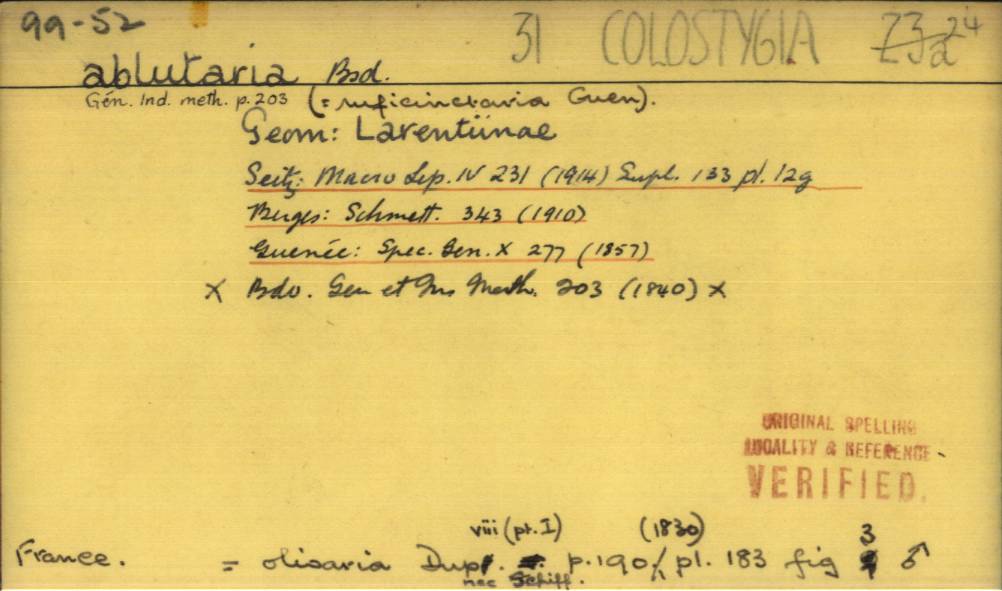 99-52 31 COLOSTYGIA 23a 24
ablutaria Bsd.
Gén. Ind. meth. p. 203 (= ruficinctaria Guen).
Geom: Larentiinae
Seitz: Macro Lep. IV 231 (1914) Supl. 133 pl. 12g
Berges: Schmett. 343 (1910)
Guenée: Spec. Gen. X 277 (1857)
X Bdv. Gen et Ins Meth. 203 (1840) X
ORIGINAL SPELLING
LOCALITY & REFERENCE
VERIFIED.
viii (pt. I) (1830) 3
France. = olivaria Dup. p. 190 pl. 183 fig ♂
nec Schiff.